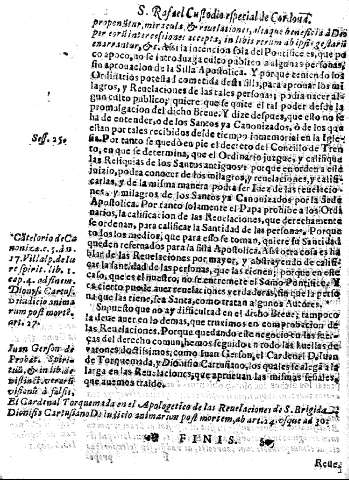 S. Rafael Custodio especial de Cordoua.
propenentur, miracula, & reuelationes, aliaque beneficia à Deo
per eorũ intercessiones accepta, in libris rerum ab ipsis gestarũ
enarrantur, &c. Assi la intencion sola del Pontifice es, que po
co apoco, no se introduzga culto publico a algunas personas,
sin aprouacion de la Silla Apostolica. Y porque teniendo los
Ordinarios potestad cometida de essa silla, para aprouar los mi
lagros, y Reuelaciones de tales personas; podia nacer al-
gun culto publico; quiere que se quite el tal poder desde la
promulgacion del dicho Breue. Y dize despues, que esto no se
ha de entender, o de los Santos ya Canonizados, ò de los que
están por tales recibidos desde tiempo inmemorial en la Igle-
sia. Por tanto se quedò en pie el decreto del Concilio de Tren
to, en que se determina, que el Ordinario juzgue, y califique
las Reliquias de los Santos antiguos: porque en orden a este
juizio, podra conocer de los milagros, y reuelaciones, y califi-
carlas, y de la misma manera podrà ser Iuez de las reuelacio-
nes, y milagros de los Santos ya Canonizados por la Sede
Apostolica. Por tanto solamente el Papa prohibe a los Ordi-
narios, la calificacion de las Reuelaciones, que derechamente
se ordenan, para calificar la Santidad de las personas. Porque
todos los medios, que para esso se toman, quiere su Santidad
queden referuados para la silla Apostolica. Assi otra cosa es ha
blar de las Reuelaciones por mayor, y absrayendo de calificar
la santidad de las personas, que las tienen; porque en este
caso, que es el nuestro, no se entremete el Sumo Pontifice. Y
es cierto puede auer reuelaciones verdaderas, sin que la perso
na que las tiene, sea Santa, como tratan algunos Autores.
Supuesto que no ay dificultad en el dicho Breue; tampoco
la deue auer en lo demas, que truximos en comprobacion de
las Reuelaciones. Porque quedando el negocio en las fuer-
ças del derecho comun, hemos seguido en todo las huellas de
varones doctissimos; como Iuan Gerson, el Cardenal D. Iuan
de Torquemada, y Dionisio Cartusiano, los quales se alega a la
larga en las Reuelaciones, que aprueuan las mismas señales,
que auemos traido.
Sess. 25.
Juan Gerson de
El Cardenal Torquemada en el Apologetico de las Reuelaciones de S. Brigida
Dionisio Cartusiano De iudicio animarum post mortem, ab art. 24. vsque ad 30.
FINIS.
Reue-